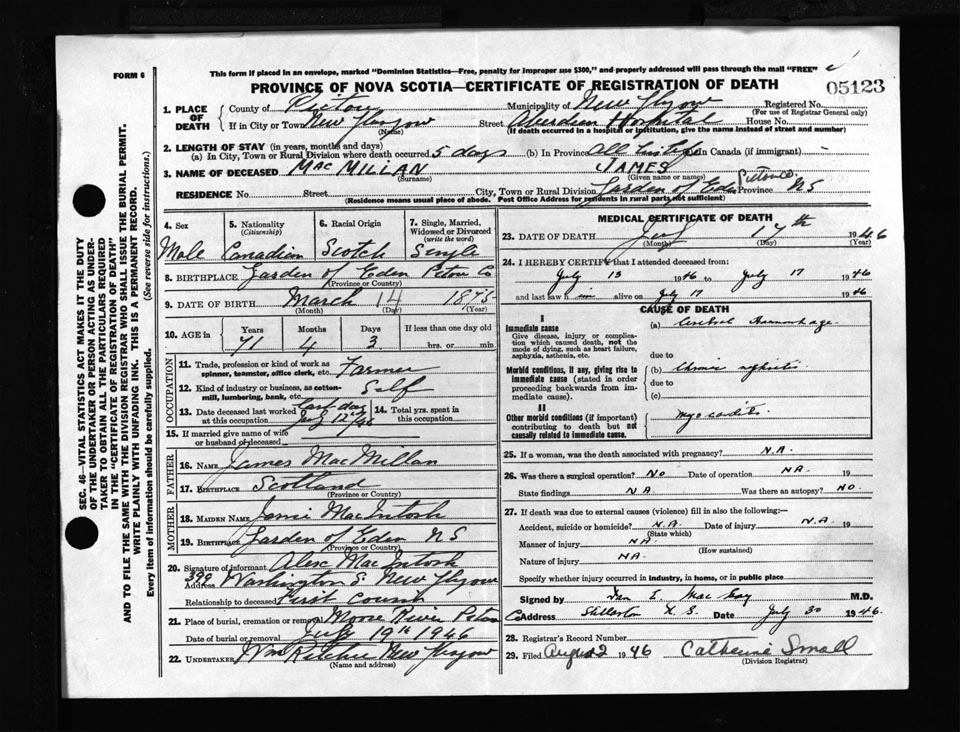 FORM 6
This form if placed in an envelope, marked "Dominion Statistics—Free, penalty for improper use $300," and properly addressed will pass through the mail "FREE"
05123
PROVINCE OF NOVA SCOTIA—CERTIFICATE OF REGISTRATION OF DEATH
1. PLACE OF DEATH { County of Pictou Municipality of New Glasgow Registered No.
(For use of Registrar General only)
If in City or Town New Glasgow (Name) Street Aberdeen Hospital House No.
(If death occurred in a hospital or institution, give the name instead of street and number)
2. LENGTH OF STAY (in years, months and days)
(a) In City, Town or Rural Division where death occurred 5 days (b) In Province All his life (c) In Canada (if immigrant) -
3. NAME OF DECEASED MacMILLAN (Surname) JAMES (Given name or names)
RESIDENCE No. Street City, Town or Rural Division Garden of Eden Pictou Co Province NS
(Residence means usual place of abode. Post Office Address for residents in rural parts not sufficient)
4. Sex Male
5. Nationality (Citizenship) Canadian
6. Racial Origin Scotch
7. Single, Married, Widowed or Divorced (write the word) Single
8. BIRTHPLACE Garden of Eden Pictou Co
(Province or Country)
9. DATE OF BIRTH March 14 1875
(Month) (Day) (Year)
10. AGE in { Years Months Days If less than one day old
71 4 3 hrs. or min.
OCCUPATION
11. Trade, profession or kind of work as spinner, teamster, office clerk, etc. Farmer
12. Kind of industry or business, as cotton-mill, lumbering, bank, etc. Self
13. Date deceased last worked at this occupation July 12/46
14. Total yrs. spent in this occupation
15. If married give name of wife or husband of deceased
FATHER
16. NAME James MacMillan
17. BIRTHPLACE Scotland
(Province or Country)
MOTHER
18. MAIDEN NAME MacIntosh
19. BIRTHPLACE Garden of Eden NS
(Province or Country)
20. Signature of informant Alex MacIntosh
Address 399 Washington S New Glasgow
Relationship to deceased First Cousin
21. Place of burial, cremation or removal Moose River Pictou
Date of burial or removal July 19th 1946
22. UNDERTAKER Wm Ritchie New Glasgow
(Name and address)
MEDICAL CERTIFICATE OF DEATH
23. DATE OF DEATH July 17th 1946
(Month) (Day) (Year)
24. I HEREBY CERTIFY that I attended deceased from:
July 13 1946 to July 17 1946
and last saw him alive on July 17 1946
CAUSE OF DEATH
I
Immediate cause (a) Cerebral Haemorrhage
Give disease, injury or complication which caused death, not the mode of dying, such as heart failure, asphyxia, asthenia, etc.
due to
Morbid conditions, if any, giving rise to immediate cause (stated in order proceeding backwards from immediate cause).
(b) Chronic nephritis
due to
(c)
II
Other morbid conditions (if important) contributing to death but not causally related to immediate cause.
Myocarditis
25. If a woman, was the death associated with pregnancy? N.A.
26. Was there a surgical operation? No Date of operation NA. 19
State findings N A Was there an autopsy? NO.
27. If death was due to external causes (violence) fill in also the following:—
Accident, suicide or homicide? N.A. Date of injury N.A. 19
(State which)
Manner of injury NA.
(How sustained)
Nature of injury NA.
Specify whether injury occurred in industry, in home, or in public place
Signed by M.D.
Address Stellarton N. S. Date July 30 1946.
28. Registrar's Record Number
29. Filed August 2 1946 Catherine Small
(Division Registrar)
SEC. 46—VITAL STATISTICS ACT MAKES IT THE DUTY
OF THE UNDERTAKER OR PERSON ACTING AS UNDER-
TAKER TO OBTAIN ALL THE PARTICULARS REQUIRED
IN THE "CERTIFICATE OF REGISTRATION OF DEATH"
AND TO FILE THE SAME WITH THE DIVISION REGISTRAR WHO SHALL ISSUE THE BURIAL PERMIT.
WRITE PLAINLY WITH UNFADING INK. THIS IS A PERMANENT RECORD.
Every item of information should be carefully supplied. (See reverse side for instructions.)